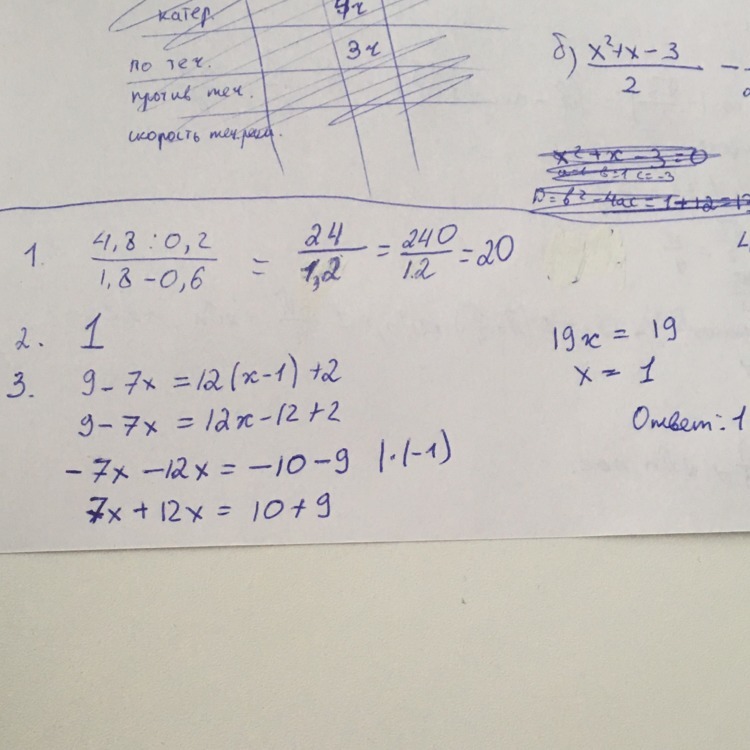 катер. 4ч
по теч. 3ч
против теч.
скорость теч.
б) x²+x-3 / 2 -
x²+x-3=0
a=1 b=1 c=-3
D=b²-4ac=1+12=13
1. 4,8:0,2 / 1,8-0,6 = 24 / 1,2 = 240 / 12 = 20
2. 1
3. 9-7x=12(x-1)+2
9-7x=12x-12+2
-7x-12x=-10-9 |·(-1)
7x+12x=10+9
19x=19
x=1
Ответ: 1